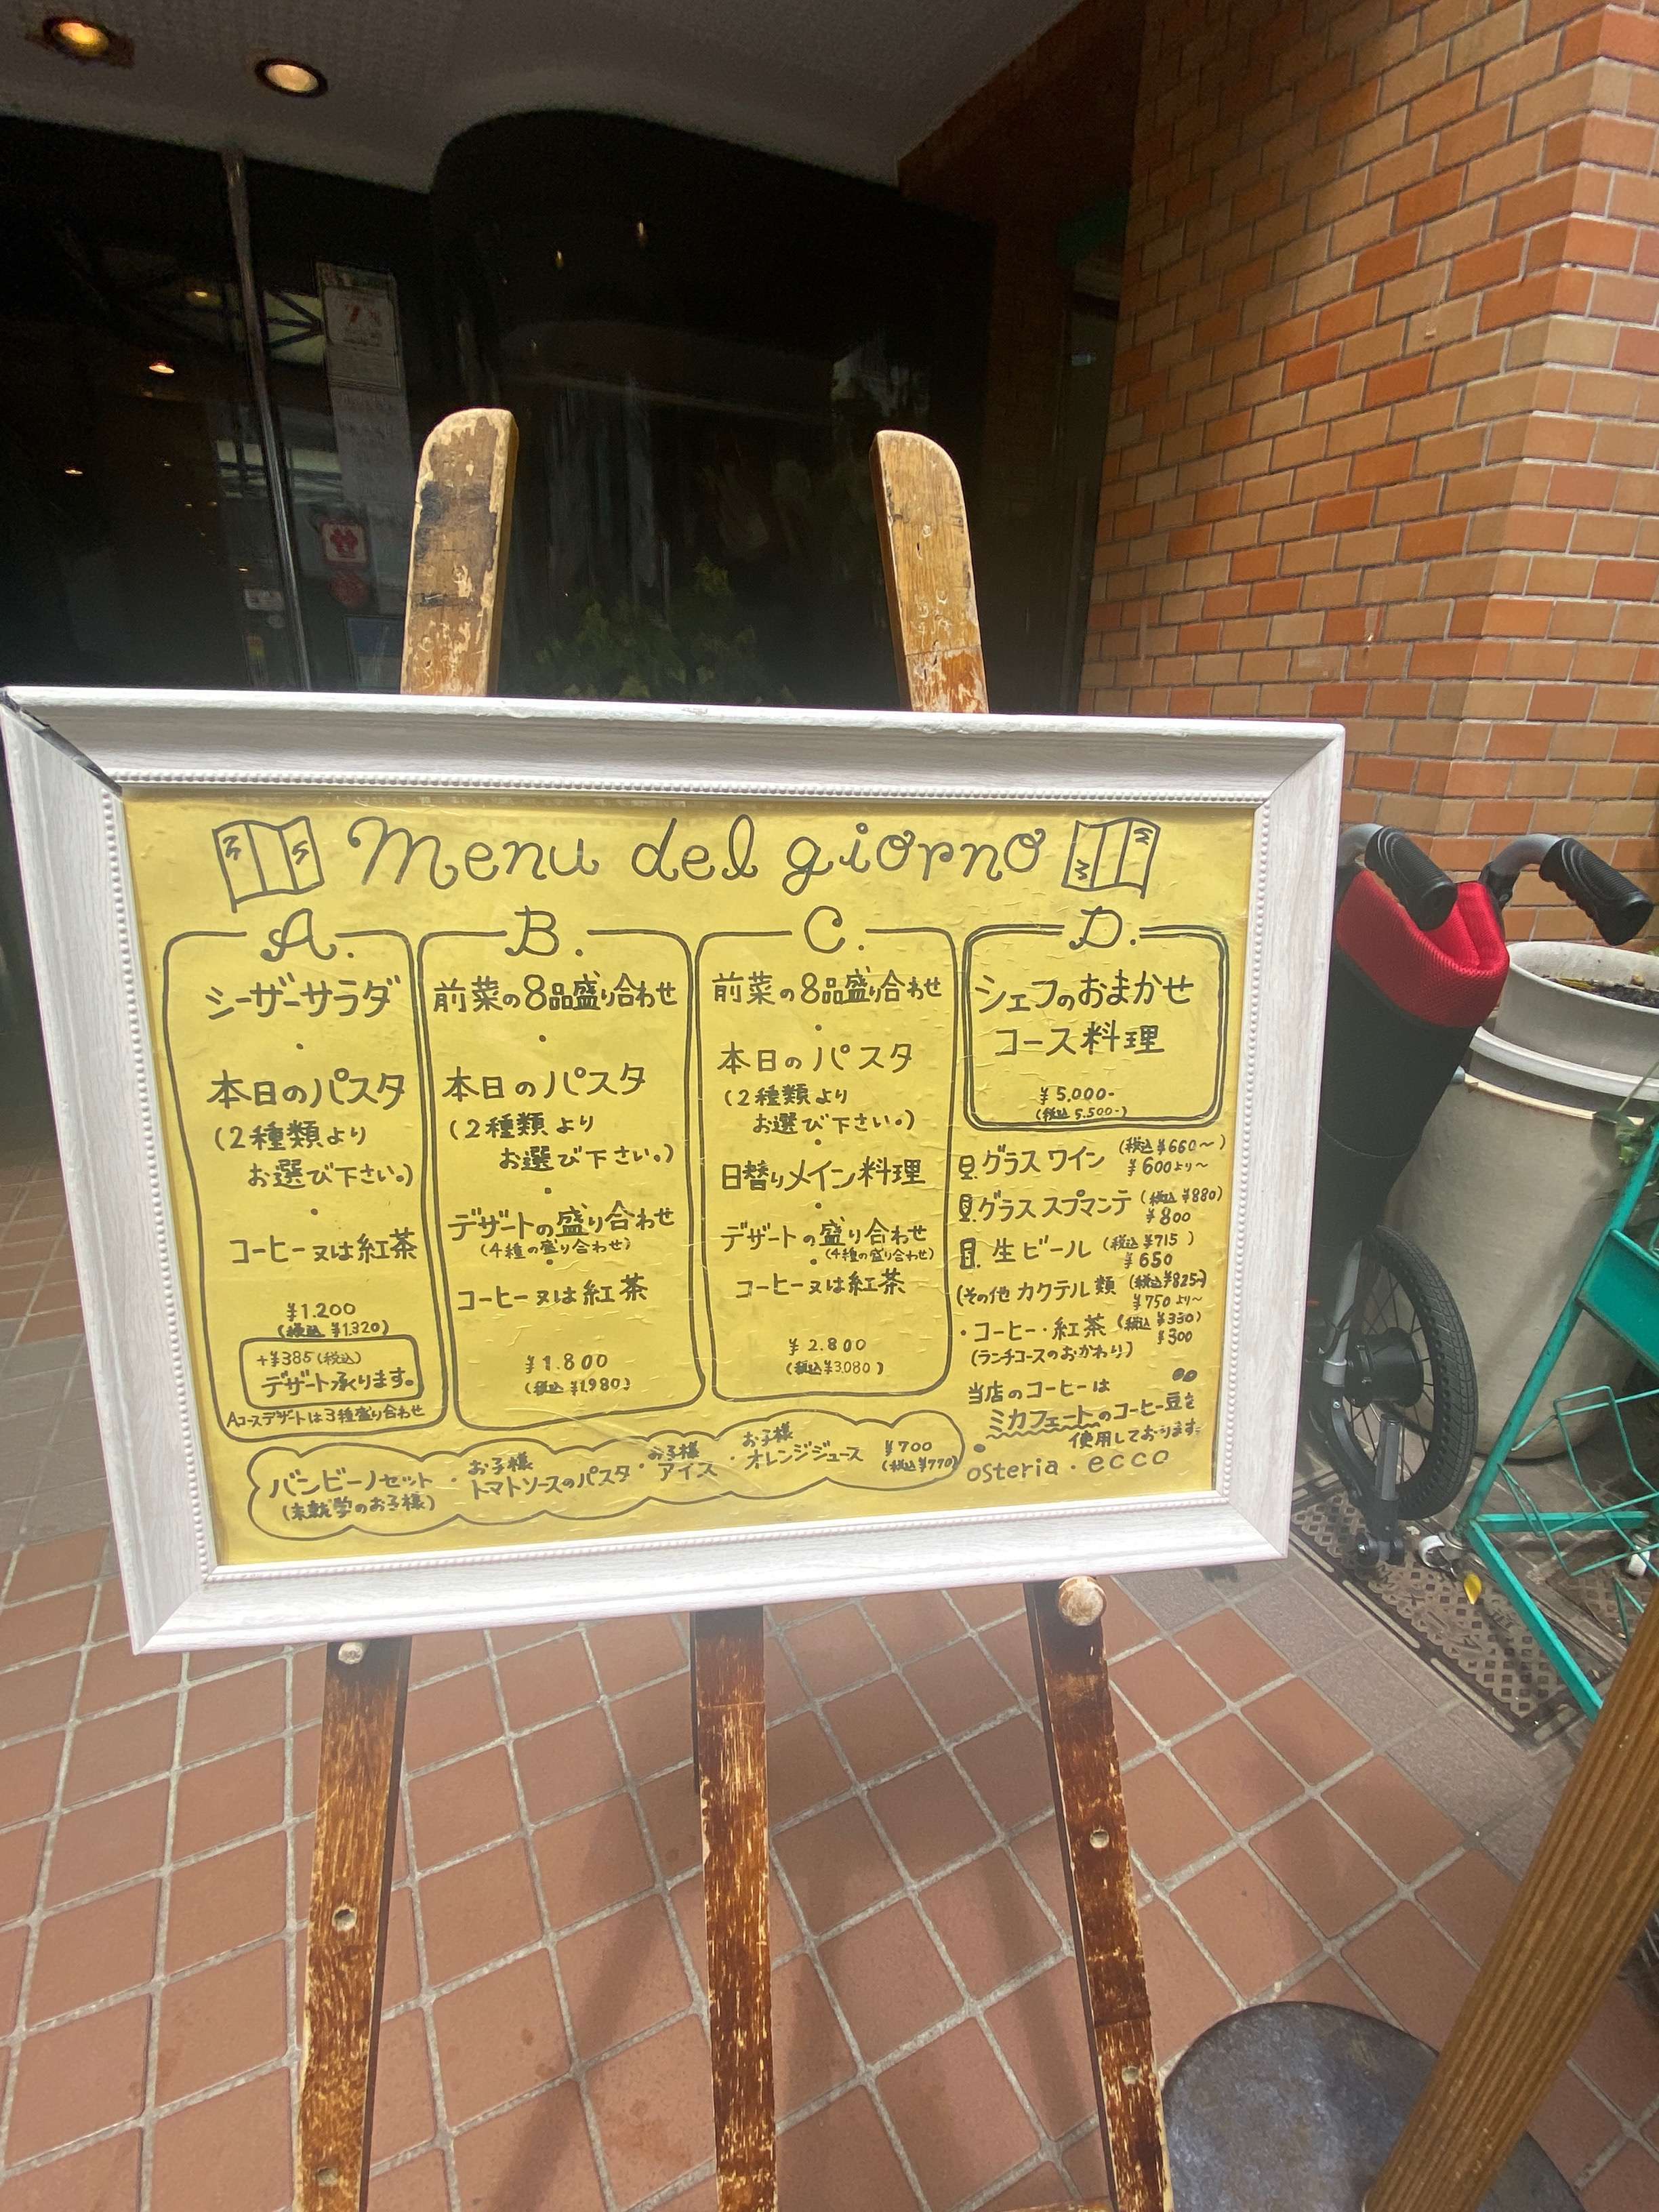 Menu del giorno
A.
シーザーサラダ
・
本日のパスタ
(2種類より
お選び下さい。)
・
コーヒー又は紅茶
¥1.200
(税込 ¥1,320)
+¥385(税込)
デザート承ります。
Aコースデザートは3種盛り合わせ
B.
前菜の8品盛り合わせ
・
本日のパスタ
(2種類より
お選び下さい。)
・
デザートの盛り合わせ
(4種の盛り合わせ)
・
コーヒー又は紅茶
¥1.800
(税込 ¥1,980)
C.
前菜の8品盛り合わせ
・
本日のパスタ
(2種類より
お選び下さい。)
・
日替りメイン料理
・
デザートの盛り合わせ
(4種の盛り合わせ)
・
コーヒー又は紅茶
¥2.800
(税込¥3080)
D.
シェフのおまかせ
コース料理
¥5,000-
(税込 5,500-)
グラスワイン (税込¥660〜)
¥600より〜
グラス スプマンテ (税込 ¥880)
¥800
生ビール (税込¥715)
¥650
(その他 カクテル類 (税込¥825〜)
¥750より〜
・コーヒー・紅茶 (税込 ¥330)
¥300
(ランチコースのおかわり)
当店のコーヒーは
ミカフェートのコーヒー豆を
使用しております。
osteria・ecco
バンビーノセット
(未就学のお子様)
・お子様
トマトソースのパスタ
・お子様
アイス
・お子様
オレンジジュース
¥700
(税込¥770)